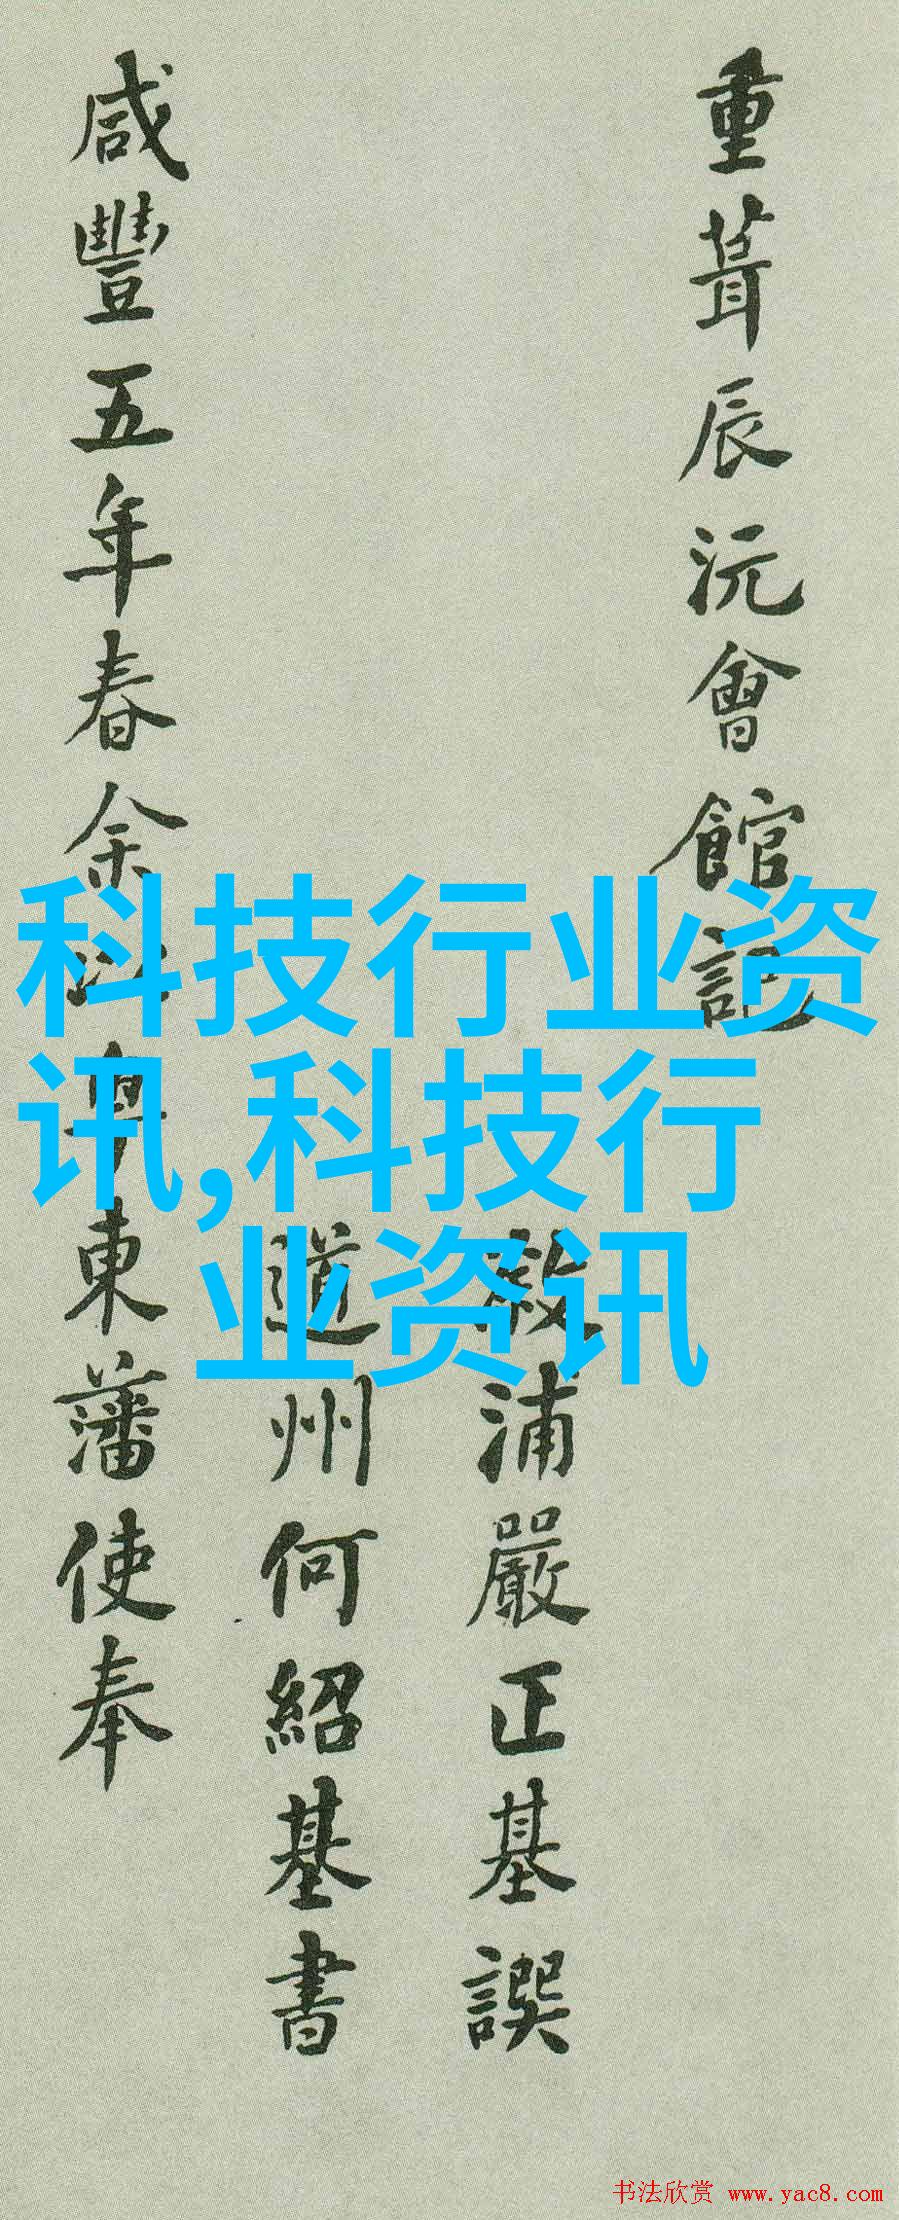 重葺辰沅會館記
溆浦嚴正基譔
道州何紹基書
咸豐五年春余以粤東藩使奉
科技行业资
讯,科技行
业资讯
书法欣赏 www.yac8.com